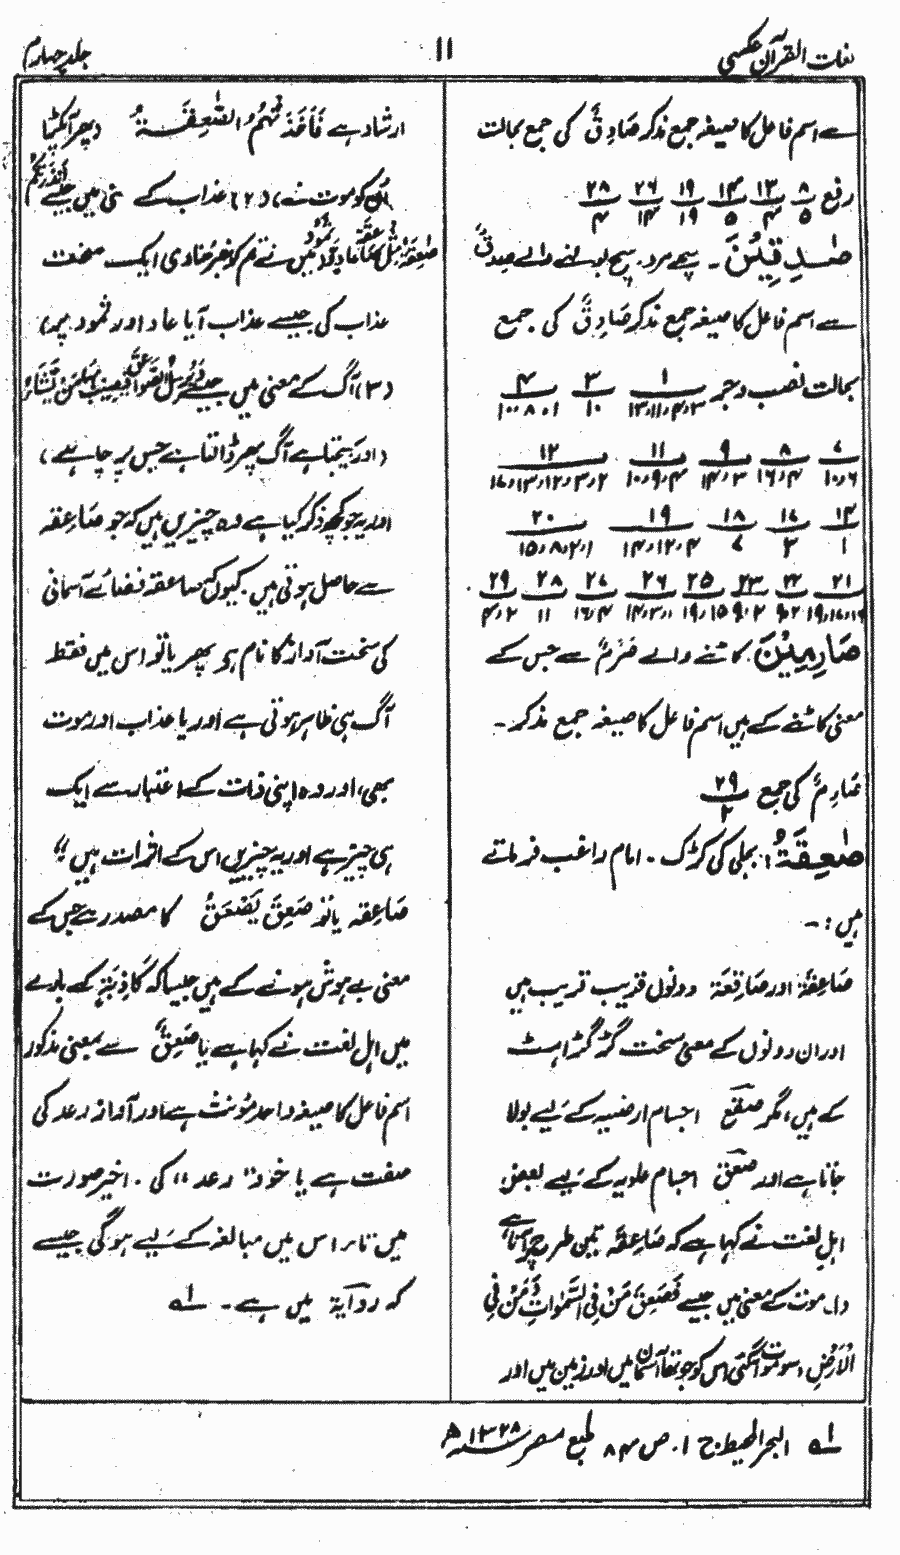 لغات القرآن عکسی
۱۱
جلد چہارم
سے اسم فاعل کا صیغہ جمع مذکر صَادِقٌ کی جمع بحالت
رفع ۸/۵ ۱۳/۴ ۱۴/۵ ۱۹/۱۹ ۲۶/۱۴ ۲۸/۴
صٰدِقِیْنَ ۔ سچے مرد، سچ بولنے والے صدقٌ
سے اسم فاعل کا صیغہ جمع مذکر صَادِقٌ کی جمع
بحالت نصب وجر ۱/۱۳،۱۱،۴،۳ ۳/۱۰ ۴/۱۰،۸،۱
۷/۱۰،۶ ۸/۱۶،۴ ۹/۱۴،۳ ۱۱/۱۰،۹،۴ ۱۲/۱۷،۱۳،۱۲،۳،۲
۱۴/۱ ۱۷/۳ ۱۸/۷ ۱۹/۱۴،۱۲،۴ ۲۰/۱۵،۸،۲،۱
۲۱/۱۹،۱۷،۱۶ ۲۲/۹،۲ ۲۳/۹،۲ ۲۵/۱۹،۱۵ ۲۶/۱۴،۲،۱ ۲۷/۱۶،۴ ۲۸/۱۱ ۲۹/۴،۲
صَارِمِیْنَ ۔ کاٹنے والے صَرْمٌ سے جس کے
معنی کاٹنے کے ہیں اسم فاعل کا صیغہ جمع مذکر ۔
صَارِمٌ کی جمع ۲۹/۲
صٰعِقَۃٌ : بجلی کی کڑک ۔ امام راغب فرماتے
ہیں :۔
صَاعِقَۃ اور صَاقِعَۃ دونوں قریب قریب ہیں
اور ان دونوں کے معنی سخت گڑگڑاہٹ
کے ہیں، مگر صقع اجسام ارضیہ کے لیے بولا
جاتا ہے اور صعق اجسام علویہ کے لیے بعض
اہل لغت نے کہا ہے کہ صَاعِقَۃ تین طرح پر آتا ہے
(۱) موت کے معنی میں جیسے فَصَعِقَ مَنْ فِی السَّمٰوَاتِ وَمَنْ فِی
الْاَرْضِ (سو موت آگئی اس کو جو تھا آسمان میں اور زمین میں) اور
ارشاد ہے فَاَخَذَتْہُمُ الصّٰعِقَۃُ (پھر آپکڑا
اُن کو موت نے) (۲) عذاب کے معنی میں جیسے اَنْذَرْتُکُمْ
صٰعِقَۃً مِّثْلَ صٰعِقَۃِ عَادٍ وَّثَمُوْدَ (میں نے تم کو خبر سنا دی ایک سخت
عذاب کی جیسے عذاب آیا عاد اور ثمود پر)
(۳) آگ کے معنی میں جیسے وَیُرْسِلُ الصَّوَاعِقَ فَیُصِیْبُ بِہَا مَنْ یَّشَآءُ
(اور بھیجتا ہے آگ پھر ڈالتا ہے جس پر چاہے)
اور یہ جو کچھ ذکر کیا ہے وہ چیزیں ہیں کہ جو صَاعِقہ
سے حاصل ہوتی ہیں ۔ کیوں کہ صاعقہ فضائے آسمانی
کی سخت آواز کا نام ہے پھر یا تو اس میں فقط
آگ ہی ظاہر ہوتی ہے اور یا عذاب اور موت
بھی، اور وہ اپنی ذات کے اعتبار سے ایک
ہی چیز ہے اور یہ چیزیں اس کے اثرات ہیں"
صَاعِقہ یا تو صَعِقَ یَصْعَقُ کا مصدر ہے جس کے
معنی بے ہوش ہونے کے ہیں جیسا کہ کَاذِبَۃٌ کے بارے
میں اہل لغت نے کہا ہے یا صَعِقٌ سے بمعنی مذکور
اسم فاعل کا صیغہ واحد مؤنث ہے اور آواز رعد کی
صفت ہے یا خود "رعد" کی ۔ اخیر صورت
میں تاء اس میں مبالغہ کے لیے ہوگی جیسے
کہ روایۃ میں ہے ۔ لہ
لہ البحر المحیط ج ۱، ص ۸۴ طبع مصر ۱۳۲۸ھ